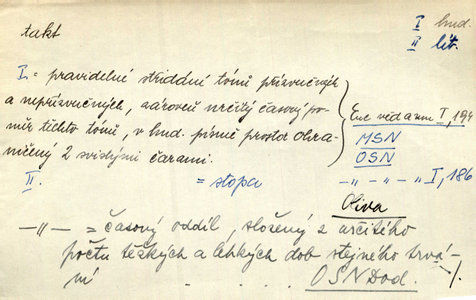 takt
I hud.
II lit.
I. = pravidelné střídání tónů přízvučných
a nepřízvučných, zároveň určitý časový po-
měr těchto tónů, v hud. písmě prostor ohra-
ničený 2 svislými čarami.
Enc věd a um I, 194
MSN
OSN
II. = stopa —„— „ — I, 186
Oliva
—„— = časový oddíl, složený z určitého
počtu těžkých a lehkých dob stejného trvá-
ní . . . . OSN Dod.